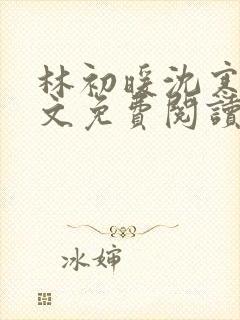 林初暖沈寒
文免費閱讀
冰嬸